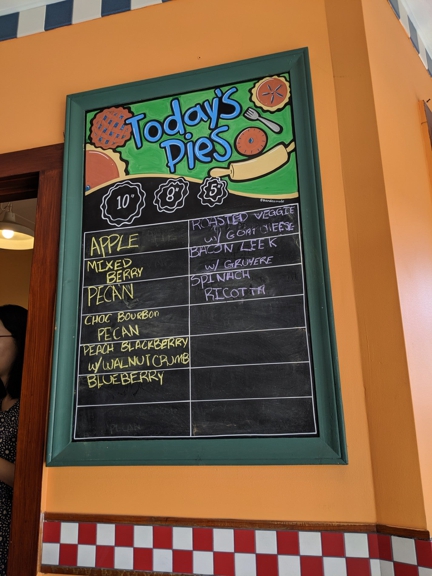 Today's
Pies
10"
8"
5"
APPLE
MIXED
BERRY
PECAN
CHOC BOURBON
PECAN
PEACH BLACKBERRY
W/WALNUT CRUMB
BLUEBERRY
ROASTED VEGGIE
W/ GOAT CHEESE
BACON LEEK
W/ GRUYERE
SPINACH
RICOTTA